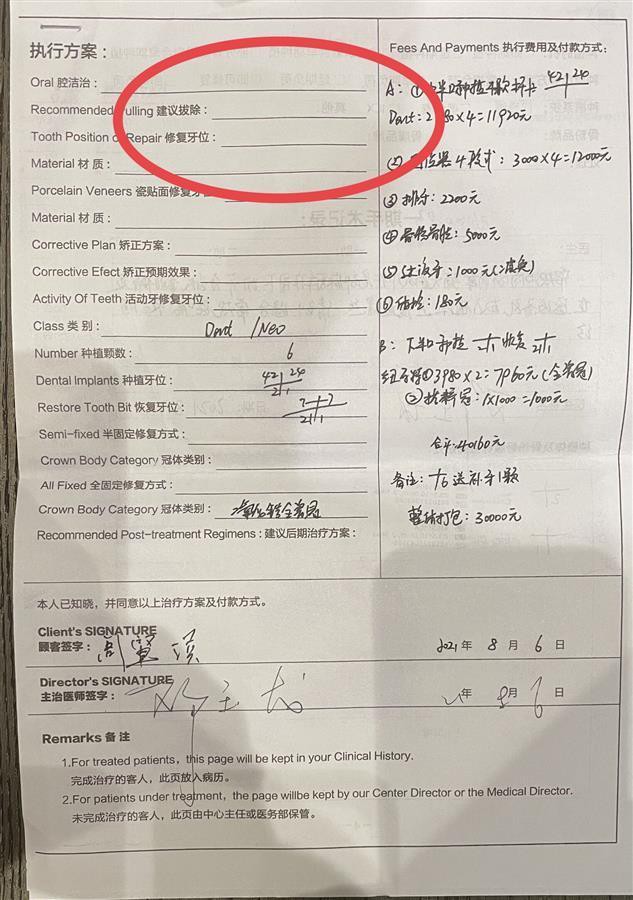 执行方案：
Oral 腔洁治：
Recommended Pulling 建议拔除：
Tooth Position of Repair 修复牙位：
Material 材 质：
Porcelain Veneers 瓷贴面修复牙位：
Material 材 质：
Corrective Plan 矫正方案：
Corrective Efect 矫正预期效果：
Activity Of Teeth 活动牙修复牙位：
Class 类 别： Dent /Neo
Number 种植颗数： 6
Dental Implants 种植牙位： 42 24 21
Restore Tooth Bit 恢复牙位： 7 7 21
Semi-fixed 半固定修复方式：
Crown Body Category 冠体类别：
All Fixed 全固定修复方式：
Crown Body Category 冠体类别： 二氧化锆全瓷冠
Recommended Post-treatment Regimens：建议后期治疗方案：
Fees And Payments 执行费用及付款方式：
A： ① 半口种植 42 24
Dent：2980×4=11920元
② 4 3000×4=12000元
③ 2200元
④ 骨粉骨胶：5000元
⑤ =1000元
⑥ 180元
B：下半口种植 恢复
①3980×2=7960元（全瓷冠）
② 1×1000=1000元
合计：40160元
备注： 6 送补牙1颗
打包：30000元
本人已知晓，并同意以上治疗方案及付款方式。
Client's SIGNATURE
顾客签字： 2021 年 8 月 6 日
Director's SIGNATURE
主治医师签字： 年 8月 6 日
Remarks 备 注
1.For treated patients, this page will be kept in your Clinical History.
完成治疗的客人，此页放入病历。
2.For patients under treatment, the page willbe kept by our Center Director or the Medical Director.
未完成治疗的客人，此页由中心主任或医务部保管。